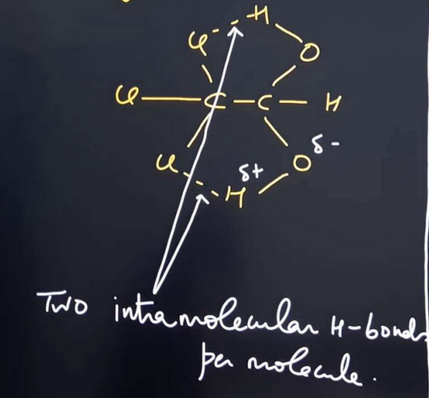 Cl H
O
Cl C C H
δ-
Cl δ+ O
H
Two intramolecular H-bonds
per molecule.